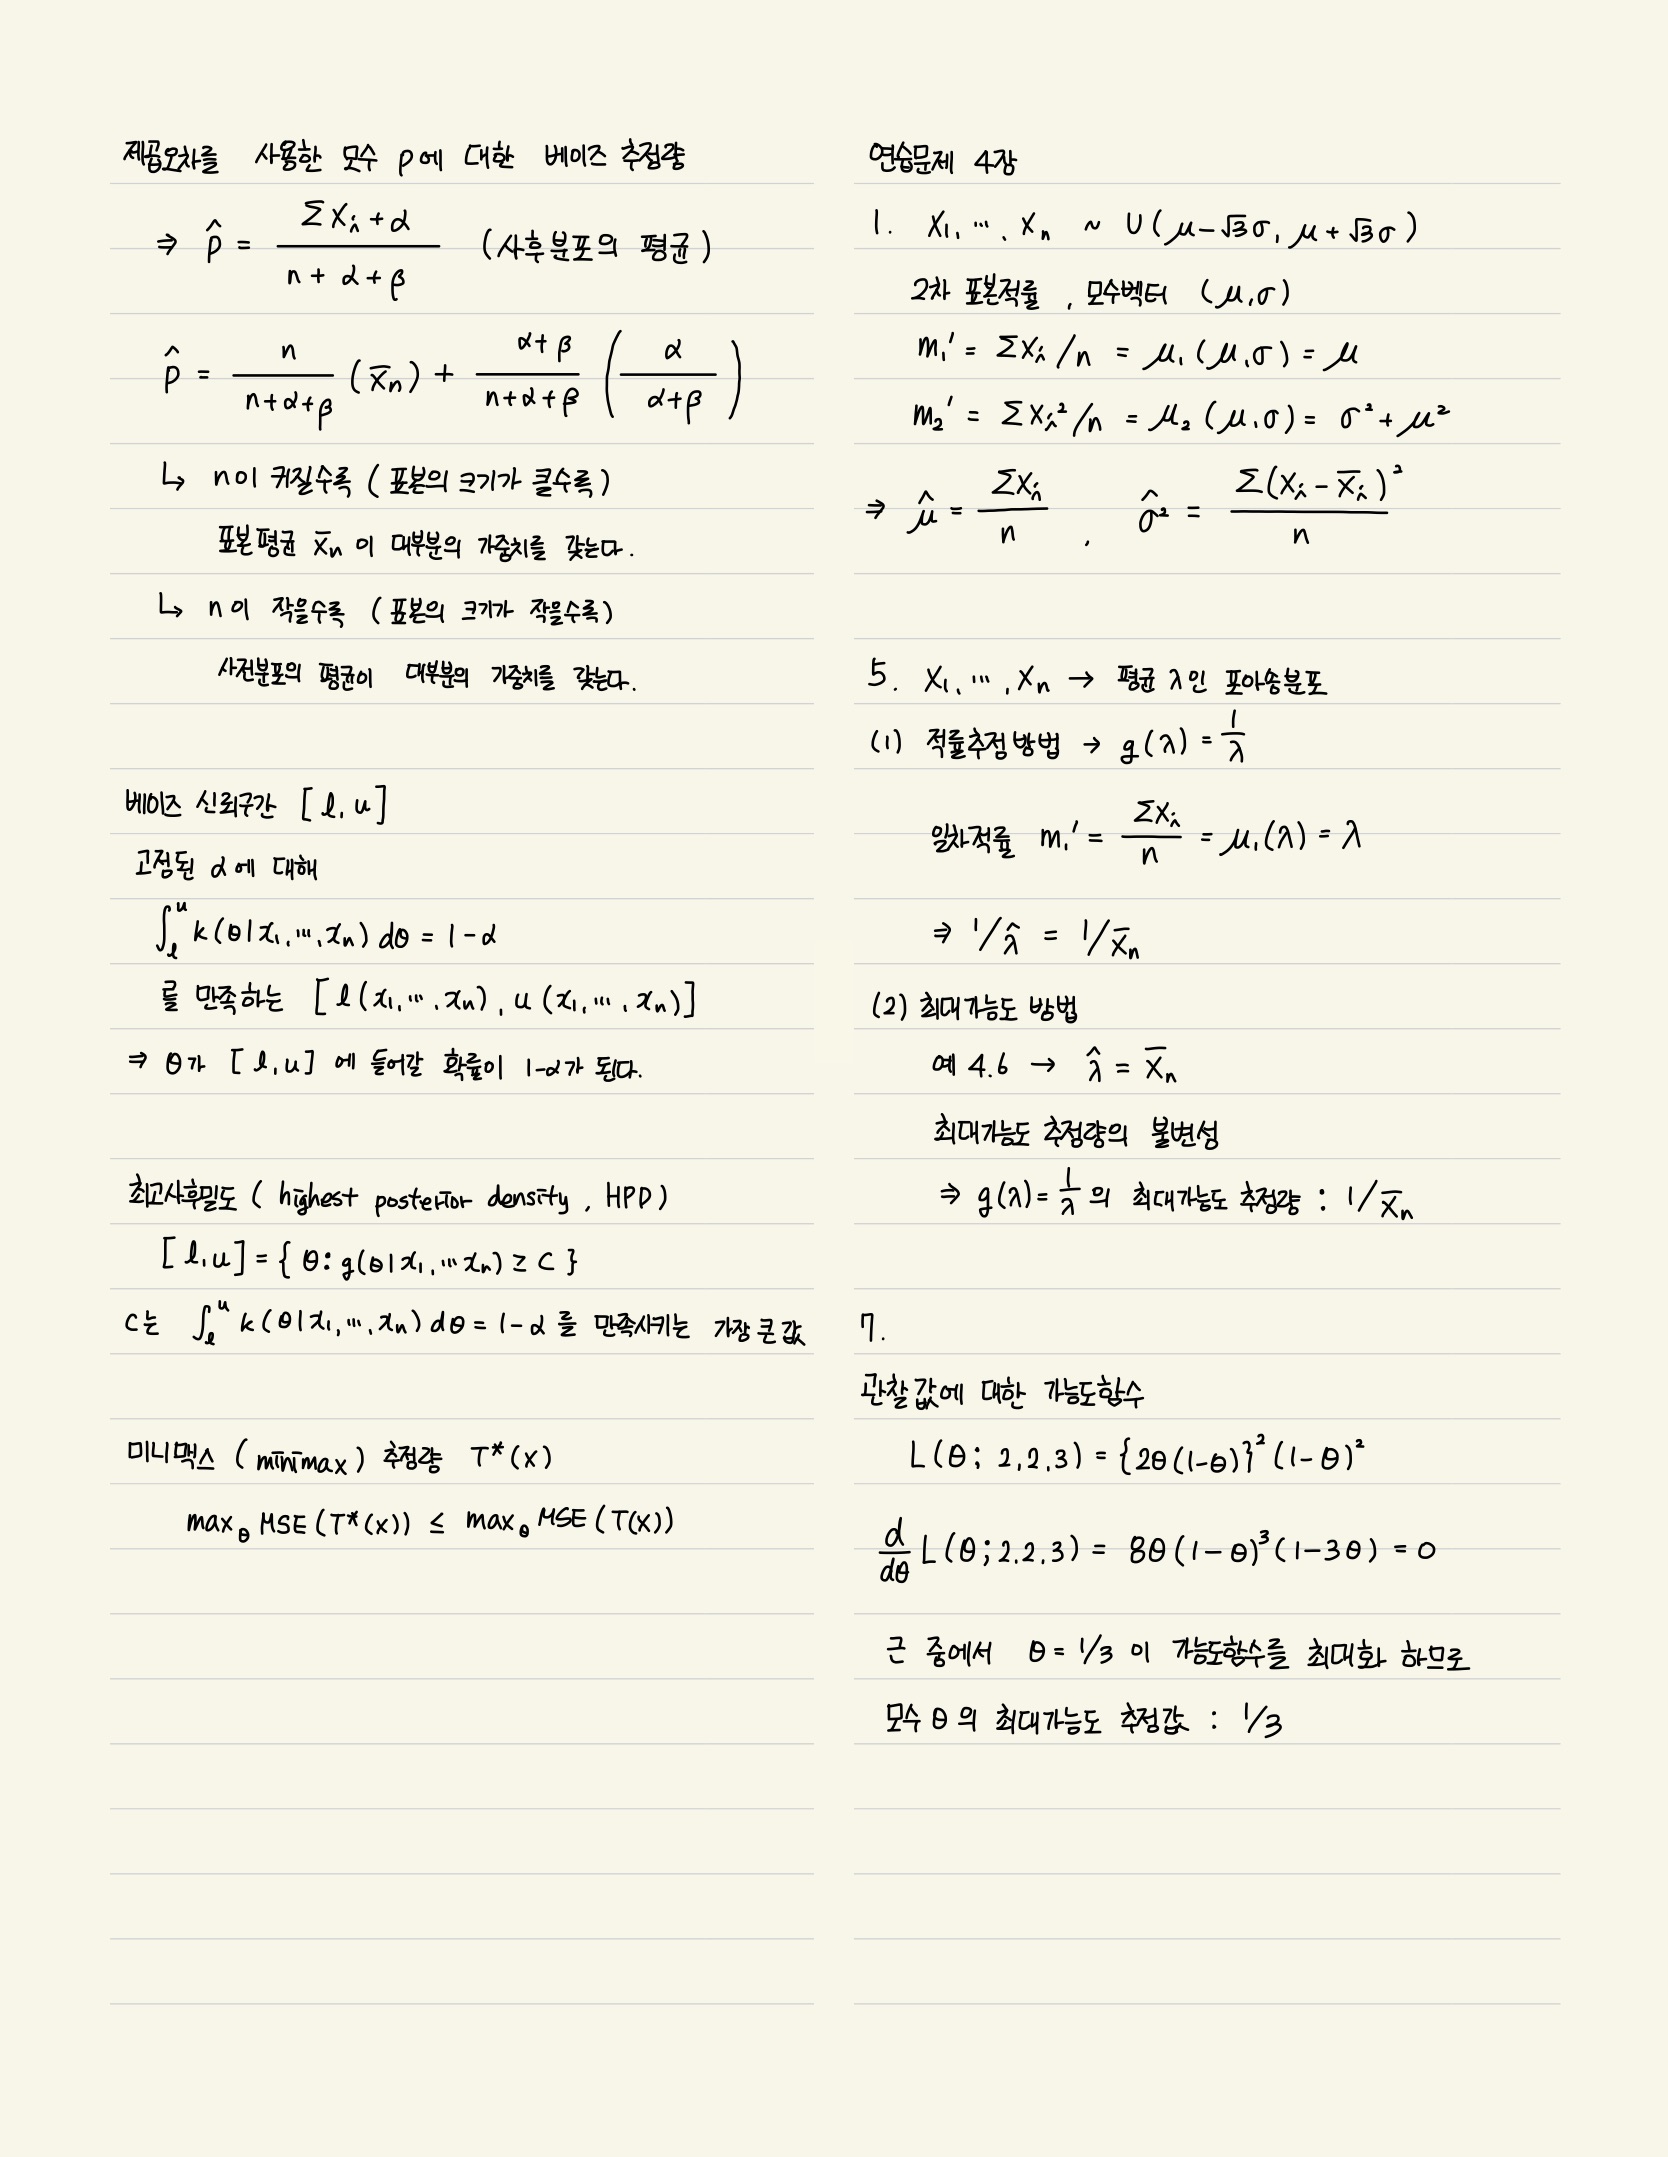 제곱오차를 사용한 모수 p에 대한 베이즈 추정량
⇒ p̂ = (ΣXᵢ + α) / (n + α + β) (사후분포의 평균)
p̂ = n/(n+α+β) (X̄n) + (α+β)/(n+α+β) (α/(α+β))
↳ n이 커질수록 (표본의 크기가 클수록)
표본평균 X̄n 이 대부분의 가중치를 갖는다.
↳ n이 작을수록 (표본의 크기가 작을수록)
사전분포의 평균이 대부분의 가중치를 갖는다.
베이즈 신뢰구간 [l, u]
고정된 α에 대해
∫ₗᵘ k(θ|x₁, …, xn) dθ = 1-α
를 만족하는 [l(x₁, …, xn), u(x₁, …, xn)]
⇒ θ가 [l, u] 에 들어갈 확률이 1-α가 된다.
최고사후밀도 (highest posterior density, HPD)
[l, u] = { θ: g(θ|x₁, … xn) ≥ c }
c는 ∫ₗᵘ k(θ|x₁, …, xn) dθ = 1-α 를 만족시키는 가장 큰 값
미니맥스 (minimax) 추정량 T*(x)
max_θ MSE(T*(x)) ≤ max_θ MSE(T(x))
연습문제 4장
1. X₁, …, Xn ~ U(μ-√3σ, μ+√3σ)
2차 표본적률, 모수벡터 (μ,σ)
m₁' = ΣXᵢ/n = μ₁(μ,σ) = μ
m₂' = ΣXᵢ²/n = μ₂(μ,σ) = σ²+μ²
⇒ μ̂ = ΣXᵢ/n , σ̂² = Σ(Xᵢ - X̄ᵢ)²/n
5. X₁, …, Xn → 평균 λ인 포아송분포
(1) 적률추정방법 → g(λ) = 1/λ
일차적률 m₁' = ΣXᵢ/n = μ₁(λ) = λ
⇒ 1/λ̂ = 1/X̄n
(2) 최대가능도 방법
예 4.6 → λ̂ = X̄n
최대가능도 추정량의 불변성
⇒ g(λ) = 1/λ 의 최대가능도 추정량 : 1/X̄n
7.
관찰값에 대한 가능도함수
L(θ; 2,2,3) = {2θ(1-θ)}² (1-θ)²
d/dθ L(θ; 2,2,3) = 8θ(1-θ)³(1-3θ) = 0
근 중에서 θ = 1/3 이 가능도함수를 최대화 하므로
모수 θ의 최대가능도 추정값 : 1/3